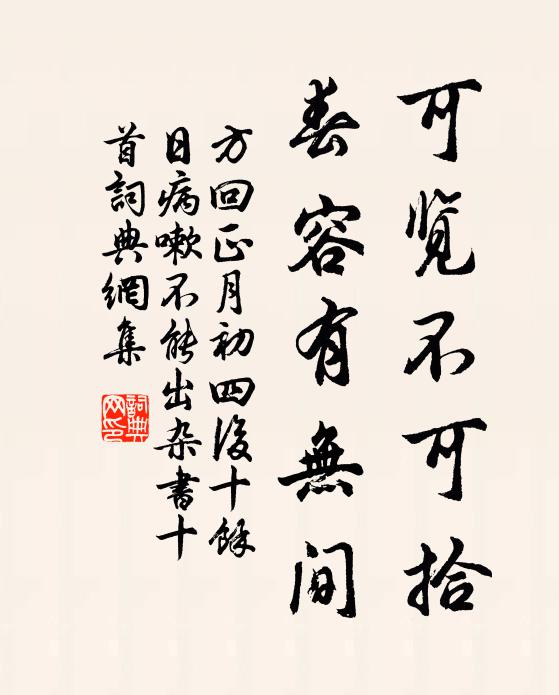 可览不可拾
春容有無间
方回正月初四後十餘
日病嗽不能出杂書十
首詞典網集
詞典网印